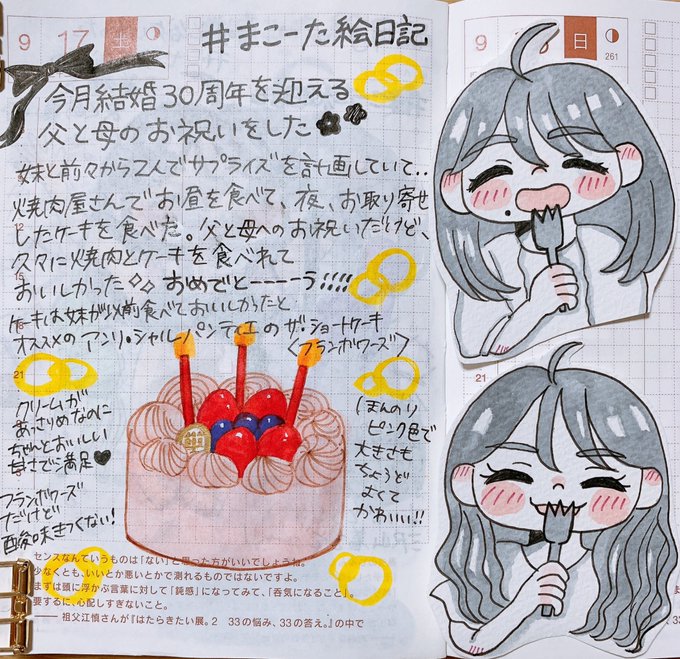 9 17 土
#まこーた絵日記
今月結婚30周年を迎える
父と母のお祝いをした
妹と前々から2人でサプライズを計画していて..
焼肉屋さんでお昼を食べて、夜、お取り寄せ
したケーキを食べた。父と母へのお祝いだけど、
久々に焼肉とケーキを食べれて
おいしかった おめでとーーーーう!!!!
ケーキは妹が以前食べておいしかったと
オススメのアンリ・シャルパンティエのザ・ショートケーキ
〈フランボワーズ〉
クリームが
あっさりめなのに
ちゃんとおいしい
甘さで大満足
フランボワーズ
だけど
酸味きつくない!
ほんのり
ピンク色で
大きさも
ちょうど
よくて
かわいい!!
センスなんていうものは「ない」と思った方がいいでしょうね。
少なくとも、いいとか悪いとかで測れるものではないですよ。
まずは頭に浮かぶ言葉に対して「鈍感」になってみて、「呑気になること」。
要するに、心配しすぎないこと。
── 祖父江慎さんが『はたらきたい展。2 33の悩み、33の答え。』の中で
9 日
261
12
18
21
21